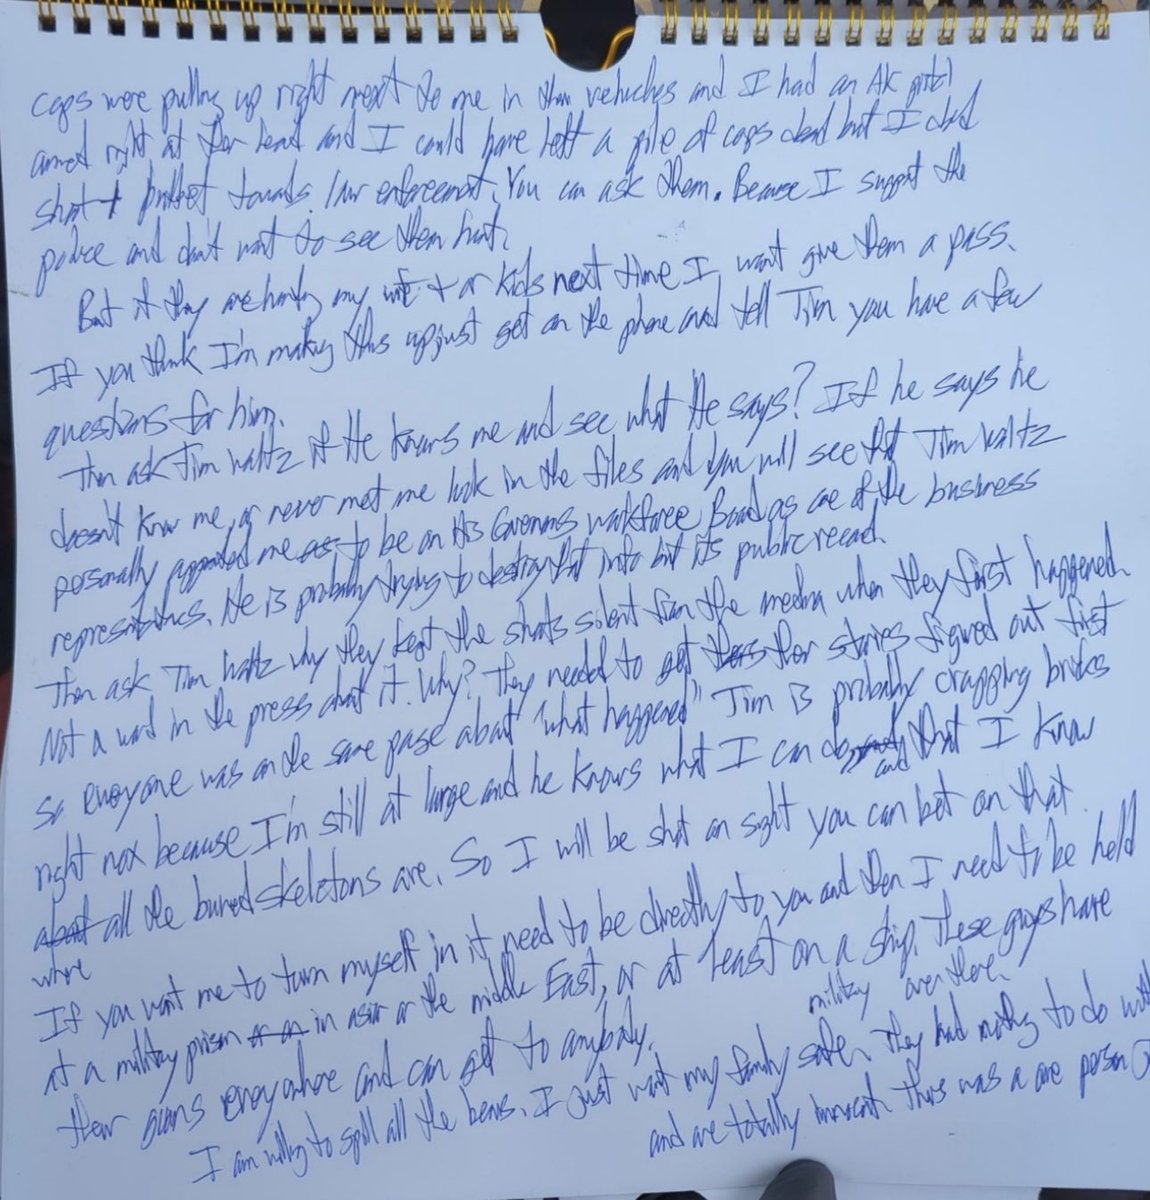 cops were pulling up right next to me in their vehicles and I had an AK pistol
aimed right at their head and I could have left a pile of cops dead but I didnt
shot 1 bullet towards law enforcement. You can ask them. Because I support the
police and don't want to see them hurt.
But if they are hurting my wife + or kids next time I wont give them a pass.
If you think I'm making this up just get on the phone and tell Tim you have a few
questions for him.
Then ask Tim Waltz if He knows me and see what He says? If he says he
doesn't know me, or never met me look in the files and you will see that Tim Waltz
personally appointed me as to be on His Governors workforce Board as one of the business
representatives. He is probably trying to destroy that info but its public record.
Then ask Tim Waltz why they kept the shots silent from the media when they first happened.
Not a word in the press about it. Why? They needed to get their stories figured out first
so everyone was on the same page about "what happened" Tim is probably crapping bricks
right now because I'm still at large and he knows what I can do and that I know
about all the buried skeletons are. So I will be shot on sight you can bet on that.
where
If you want me to turn myself in it need to be directly to you and then I need to be held
at a military prison in asia or the middle East, or at least on a ship. These guys have
military over there.
their guns everywhere and can get to anybody.
I am willing to spill all the beans. I just want my family safe. They had nothing to do with
and are totally innocent. This was a one person